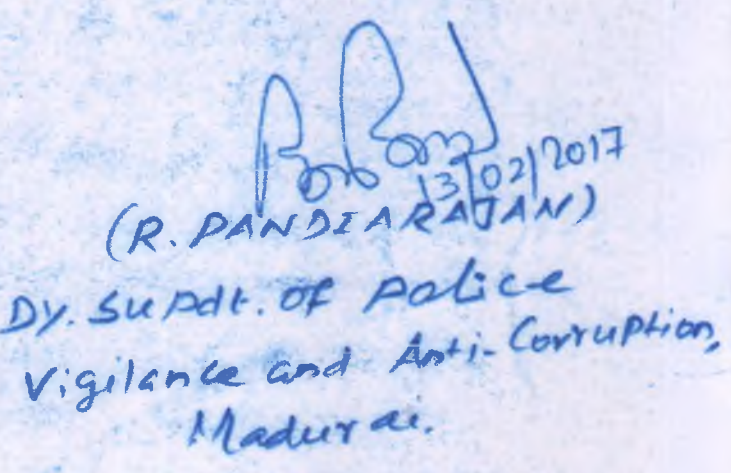 13/02/2017
(R. PANDIARAJAN)
Dy. Supdt. of Police
Vigilance and Anti-Corruption,
Madurai.